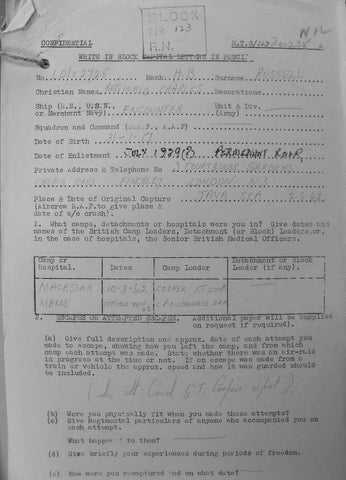 BLOCK
119 123
R.N.
CONFIDENTIAL
WRITE IN BLOCK CAPITAL LETTERS IN PENCIL
No. Rank. A.B. Surname. RUSSELL
Christian Names. REGINALD CHARLES Decorations.
Ship (R.N., U.S.N. or Merchant Navy). ENCOUNTER Unit & Div. (Army)
Squadron and Command (R.A.F., A.A.F)
Date of Birth
Date of Enlistment JULY 1929 PERMANENT
Private Address & Telephone No 3 COURTHOUSE GARDENS
CHURCH END FINCHLEY LONDON N.3
Place & Date of Original Capture JAVA SEA 2.3.42
(Aircrew R.A.F. to give place &
date of a/c crash).
1. What camps, detachments or hospitals were you in? Give dates and
names of the British Camp Leaders, Detachment (or Block) Leaders, or,
in the case of hospitals, the Senior British Medical Officers.
Camp or Hospital. Dates Camp Leader Detachment or Block Leader (if any).
MACASSAR 10-3-42 COOPER LT COM
MAROS
2. ESCAPES OR ATTEMPTED ESCAPES. Additional paper will be supplied
on request if required).
(a) Give full description and approx. date of each attempt you
made to escape, showing how you left the camp, and from which
camp each attempt was made. State whether there was an air-raid
in progress at the time or not. If an escape was made from a
train or vehicle the approx. speed and how it was guarded should
be included.
(See Lt-Cmd G.T. Coopers report)
(b) Were you physically fit when you made these attempts?
(c) Give Regimental particulars of anyone who accompanied you on
each attempt.
What happened to them?
(d) Give briefly your experiences during periods of freedom.
(e) How were you recaptured and on what date?